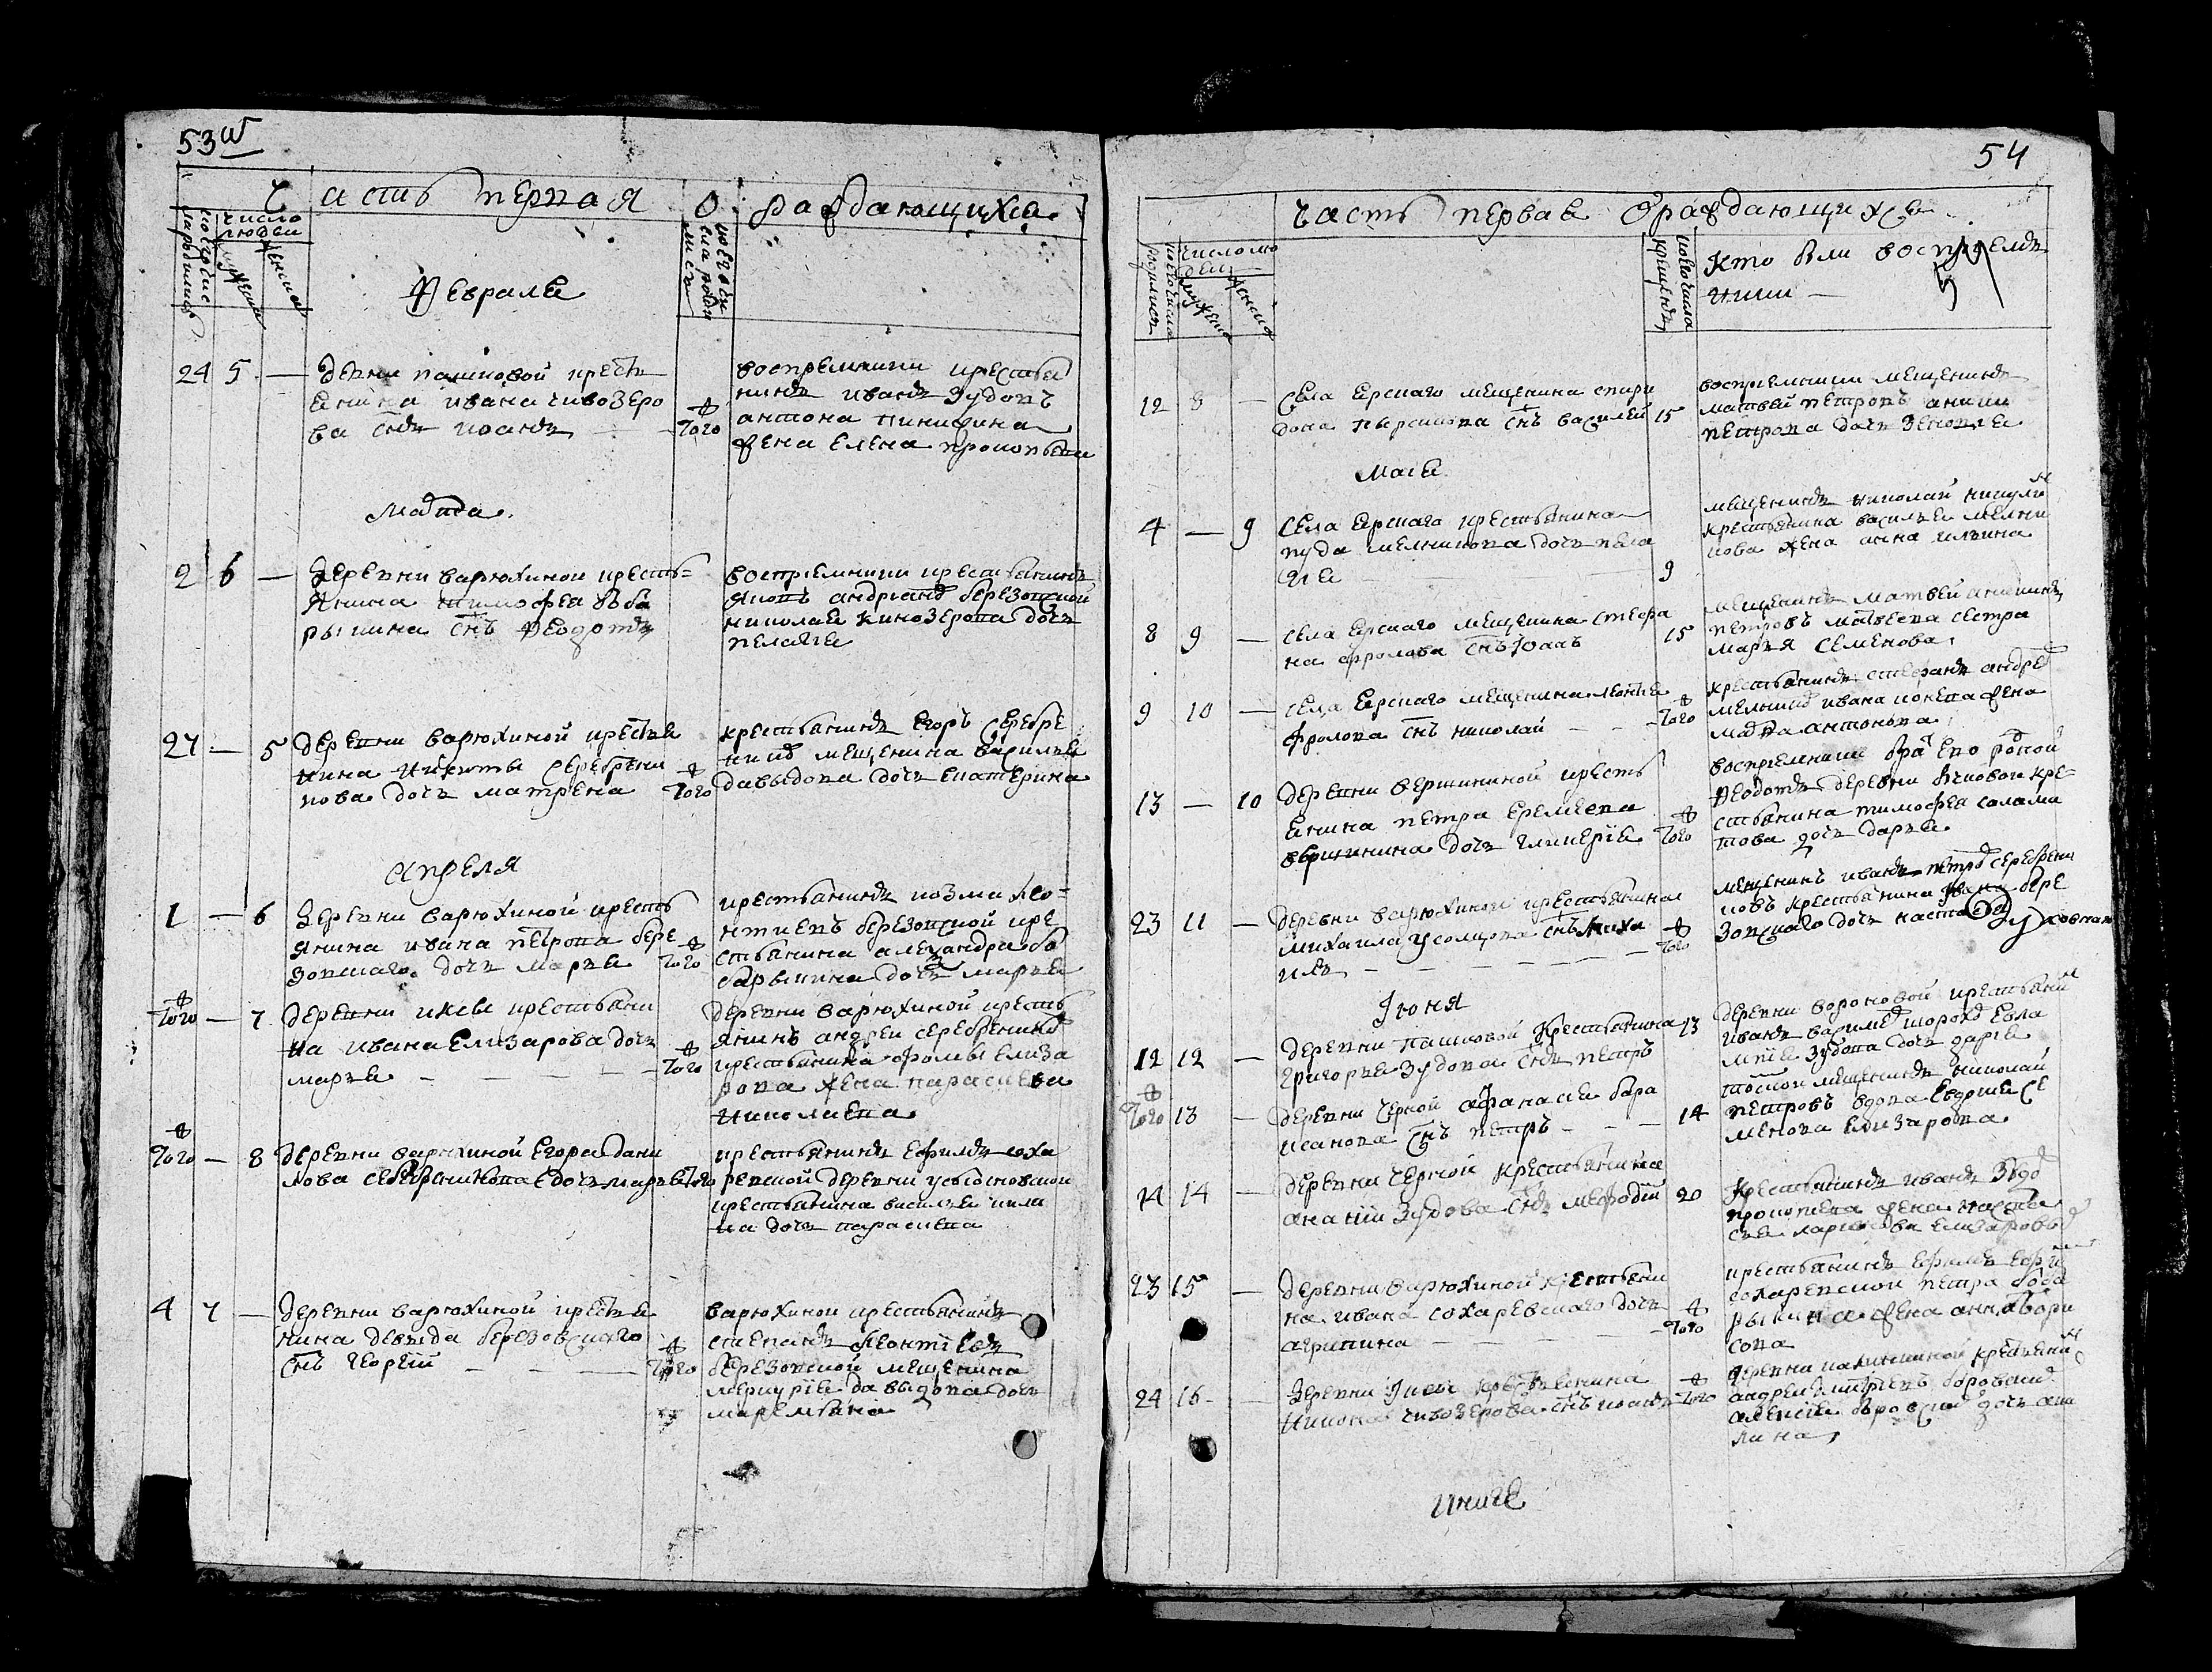 53 об
Часть первая О раждающихся
число людей
мужска
женска
Февраля
24 5 — дѣвни пашковой крестья
янина ивана чивозеро
ва снъ иоаннъ
тогож
воспремники крестья
нинъ иванъ Зудовъ
антона никитина
жена Елена прокопьева
Марта
2 6 — Деревни варюхиной кресть=
янина тимофея боба
рыкина снъ Феодотъ
воспремники крестьянинъ
андрианъ березовской
николая кивозерова дочь
пелагея
27 — 5 деревни варюхиной крестья
нина Никиты Серебрени
кова дочь матрена
тогож
крестьянинъ Егоръ Серебре
никъ мещенина василья
давыдова дочь Екатерина
Апреля
1 — 6 Деревни варюхиной кресть
янина ивана петрова бере
зовскаго дочь марья
тогож
крестьянинъ козма лео=
нтиевъ березовской кре
стьянина александра бо
барыкина дочь марья
тогож — 7 деревни искы крестьяни
на ивана Елизарова дочь
марья
тогож
деревни варюхиной кресть
янинъ андреи серебрениковъ
крестьянина фомы Елиза
рова жена параскева
Николаева
тогож — 8 деревни варюхиной Егора дани
лова серебреникова дочь марья
тогож
крестьянинъ Ефимъ соха
ревской деревни усь сосновской
крестьянина василья
на дочь параскева
4 7 — Деревни варюхиной крестья
нина девыда березовскаго
снъ георгий
тогож
варюхиной крестьянинъ
степанъ леонтиевъ
березовской мещенина
меркурия давыдова дочь
маремьяна
54
часть первая О раждающихся
число лю
дей
мужеска
женска
родились
крещены
Кто были воспрiемъ
ники —
12 8 — Села Ерскаго мещенина спири
дона першкова снъ василей
15
воспремники мещенинъ
матвей петровъ аники
петрова дочь Зеновья
Маия
4 — 9 Села Ерскаго крестьянина
нуда мельникова дочь пела
гея
9
мещенинъ николай никули
крестьянина василья мельни
кова жена анна ильина
8 9 — села Ерскаго мещенина стефа
на фролова снъ Иоаннъ
15
мещенинъ матвей аникинъ
петровъ матвеева сестра
марья семенова
9 10 — села Ерскаго мещенина леонтья
фролова снъ николай
тогож
крестьянинъ стефанъ андре
мельник ивана жена
марфа антонова
13 — 10 деревни вершининой кресть
янина петра еремеева
вершинина дочь гликерия
тогож
воспремники братъ его родной
Феодотъ деревни бычковой кре=
стьянина тимофея салама
това дочь дарья
23 11 — деревни варюхиной крестьянина
михаила усолцова снъ миха
илъ
тогож
мещенинъ иванъ петровъ серебрени
ковъ крестьянина ивана бере
зовскаго дочь настасья
Духовнаго
Iюня
12 12 — деревни пашковой Крестьянина
григорья Зудова снъ петръ
13
деревни вороновой крестьяни
иванъ Евла
мпiя Зудова дочь дарья
тогож 13 — деревни черной афанасия бара
исакова снъ петръ
14
томской мещенинъ николай
петровъ вдова Евдокия се
менова Елизарова
14 14 — деревни черной крестьянина
ананiи Зудова снъ мефодiй
20
Крестьянинъ иванъ Зудо
прокопиева жена настас
сья Елизаровы
23 15 — деревни варюхиной крестьяни
на ивана сохаревскаго дочь
агрипина
тогож
крестьянинъ ефимъ
сохаревской петра боба
рыкина жена анна бори
сова
24 16 — Деревни Iски крестьянина
Никона чивозерова снъ иоаннъ
тогож
деревни крестьяни
андреи боровски
алексия боровски дочь аки
лина
книге